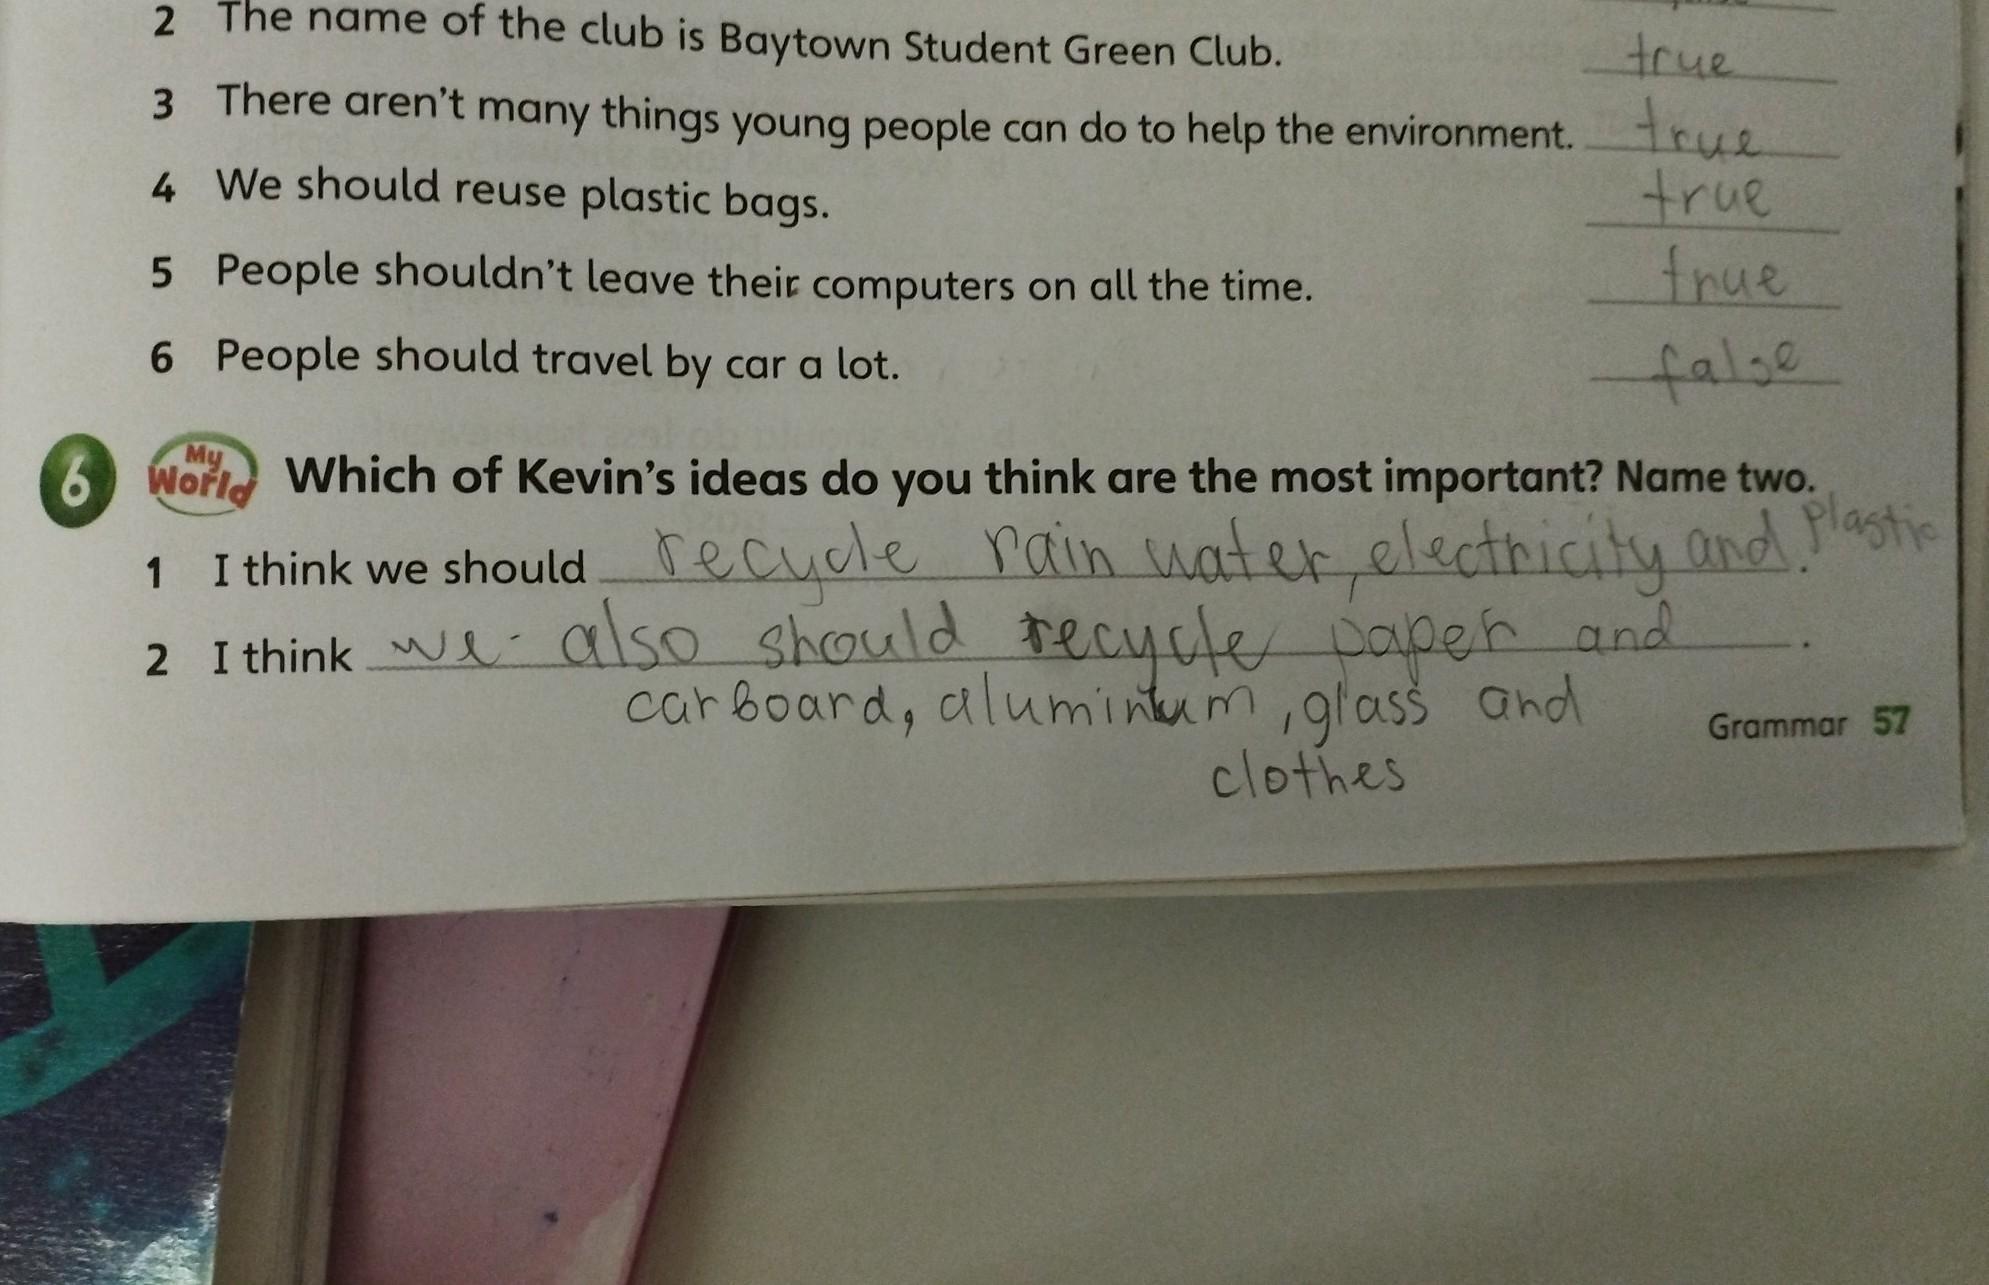 2 The name of the club is Baytown Student Green Club. true
3 There aren't many things young people can do to help the environment. true
4 We should reuse plastic bags. true
5 People shouldn't leave their computers on all the time. true
6 People should travel by car a lot. false
6 My World Which of Kevin's ideas do you think are the most important? Name two.
1 I think we should recycle rain water, electricity and plastic.
2 I think we also should recycle paper and .
carboard, aluminium, glass and
clothes
Grammar 57